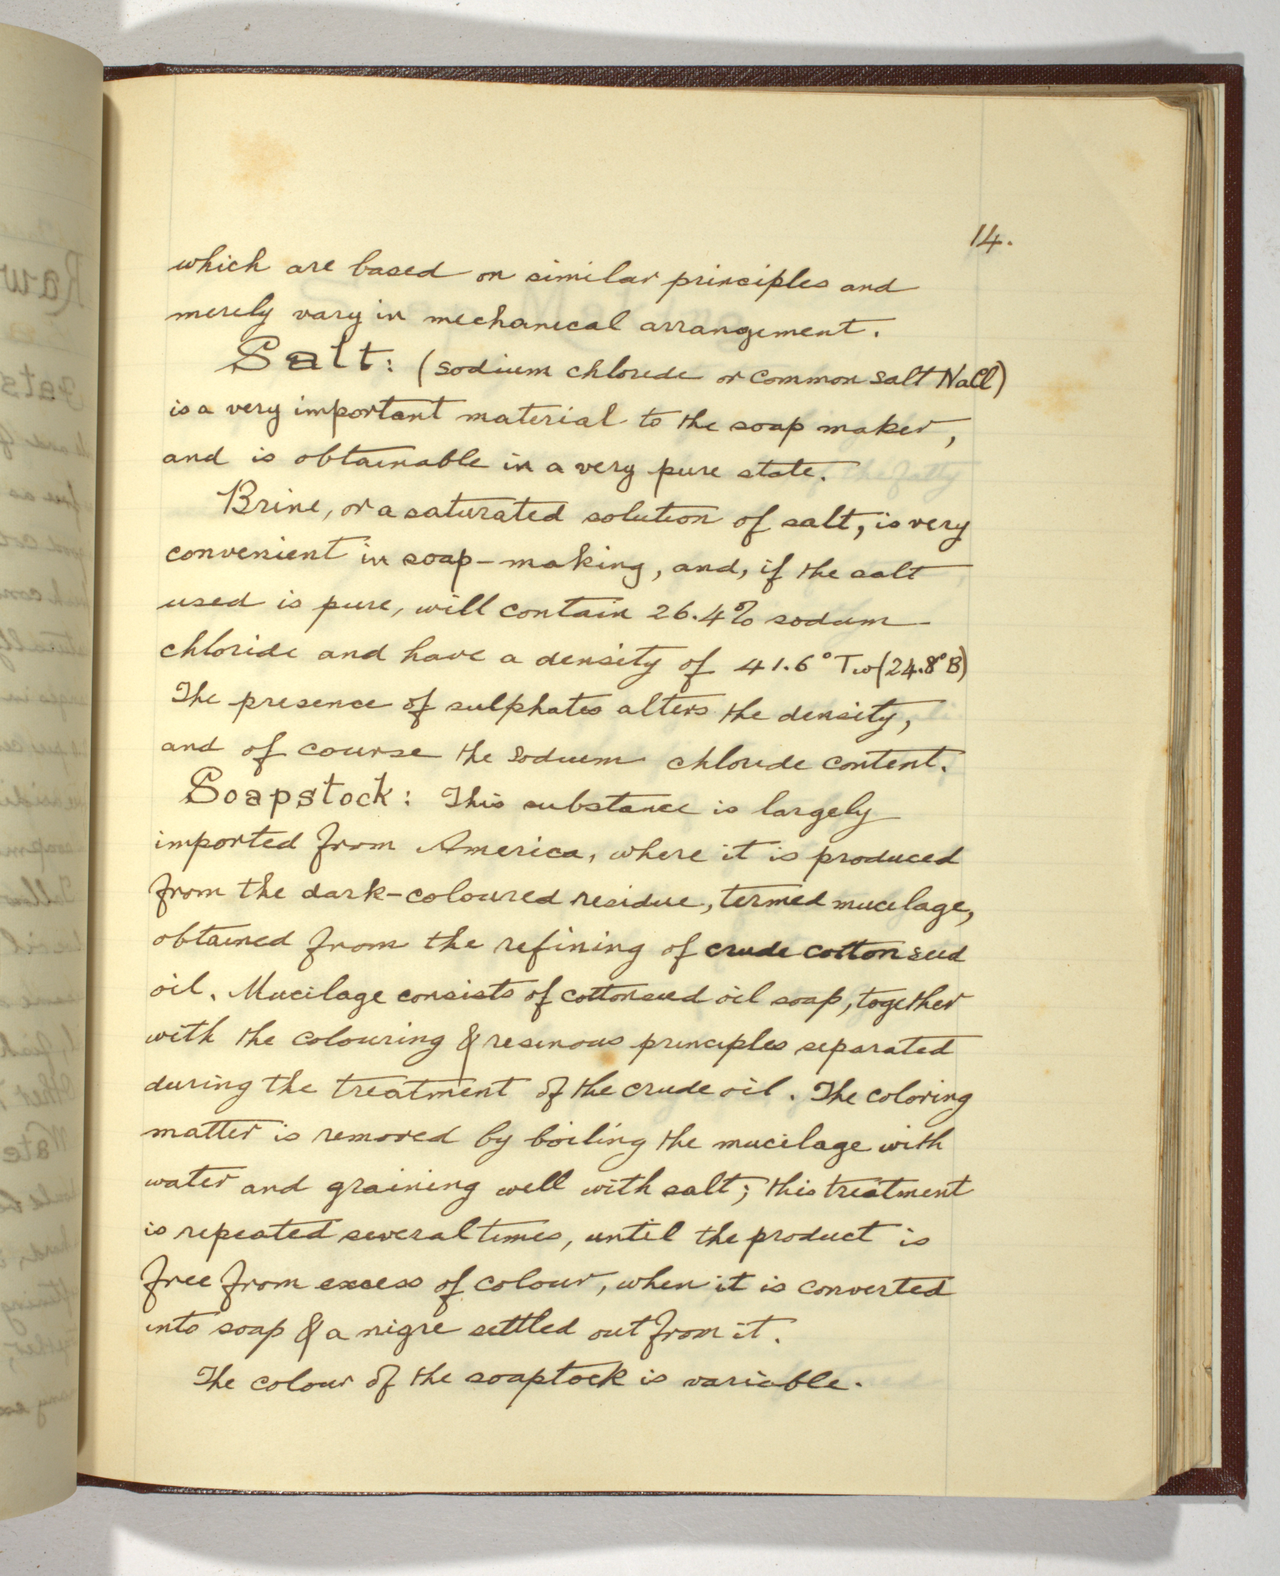 14.
which are based on similar principles and
merely vary in mechanical arrangement.
Salt: (sodium chloride or common salt NaCl)
is a very important material to the soap maker,
and is obtainable in a very pure state.
Brine, or a saturated solution of salt, is very
convenient in soap-making, and, if the salt
used is pure, will contain 26.4% sodium
chloride and have a density of 41.6° Tw (24.8° B)
The presence of sulphates alters the density,
and of course the sodium chloride content.
Soapstock: This substance is largely
imported from America, where it is produced
from the dark-coloured residue, termed mucilage,
obtained from the refining of crude cottonseed
oil. Mucilage consists of cottonseed oil soap, together
with the colouring & resinous principles separated
during the treatment of the crude oil. The coloring
matter is removed by boiling the mucilage with
water and graining well with salt; this treatment
is repeated several times, until the product is
free from excess of colour, when it is converted
into soap & a nigre settled out from it.
The colour of the soaptock is variable.